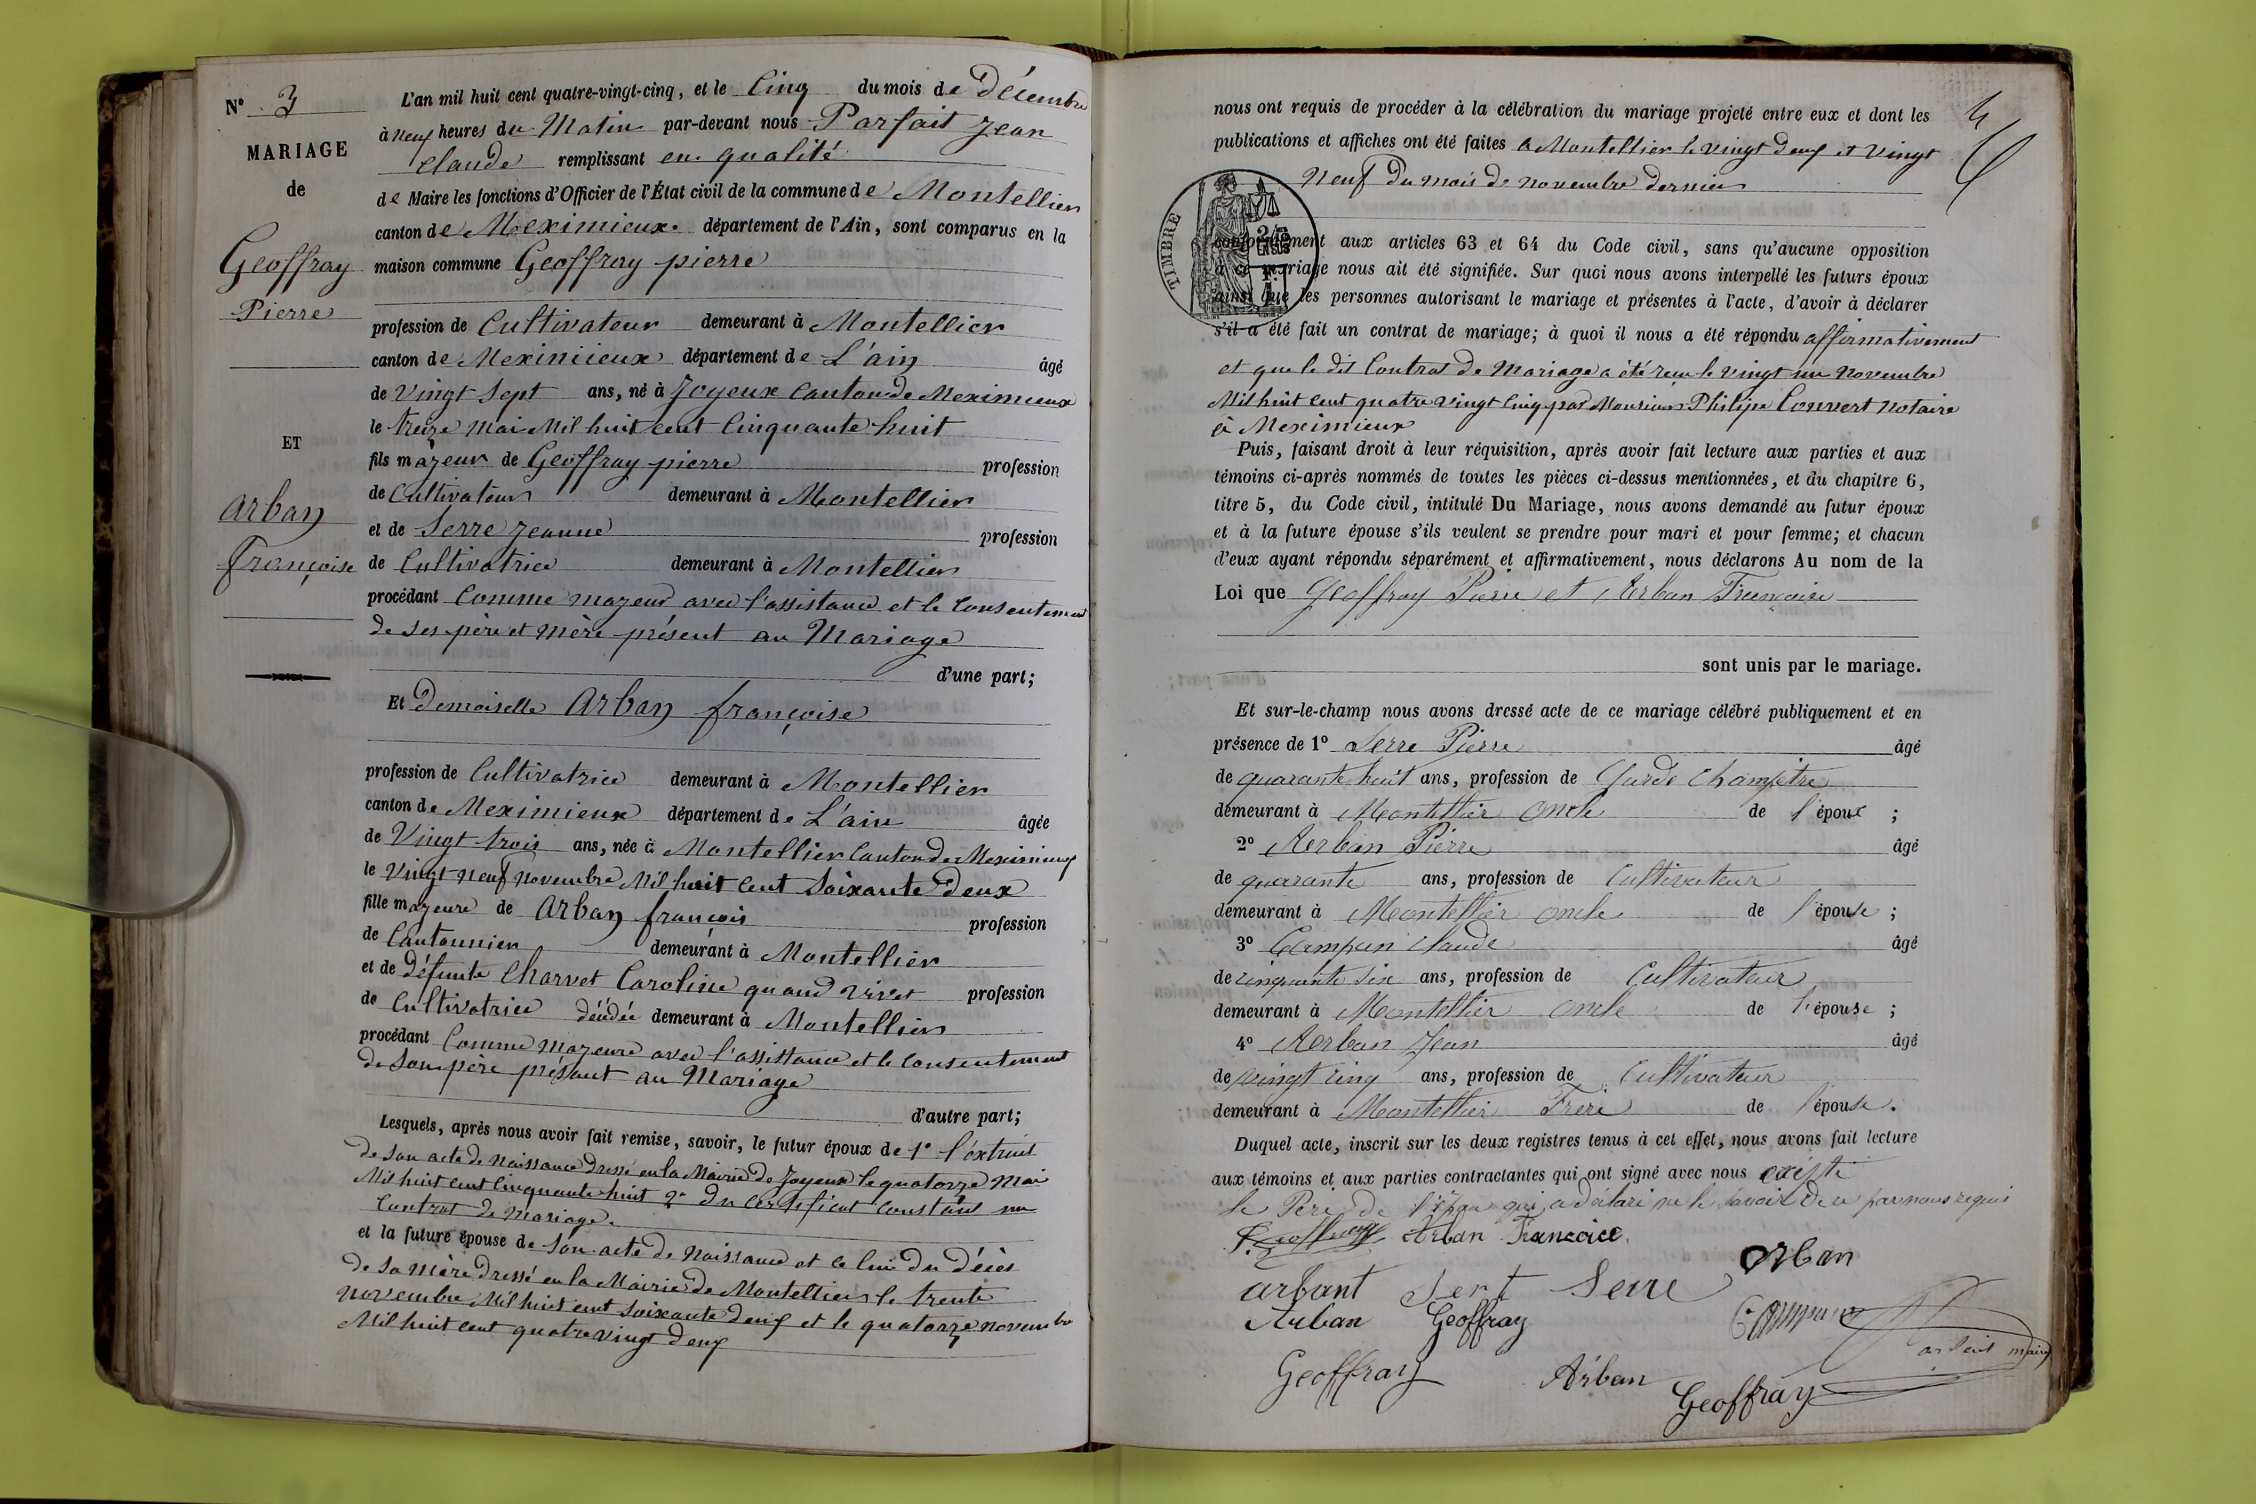 N° 3
MARIAGE
de
Geoffray
Pierre
ET
Arban
françoise
L'an mil huit cent quatre-vingt-cinq, et le Cinq du mois de Décembre
à neuf heures du Matin par-devant nous Parfait Jean
Claude remplissant en qualité
de Maire les fonctions d'Officier de l'État civil de la commune de Montellier
canton de Meximieux. département de l'Ain, sont comparus en la
maison commune Geoffray pierre
profession de Cultivateur demeurant à Montellier
canton de Meximieux département de L'ain âgé
de vingt sept ans, né à Joyeux Canton de Meximieux
le treize Mai Mil huit cent Cinquante huit
fils majeur de Geoffray pierre profession
de Cultivateur demeurant à Montellier
et de Serre Jeanne profession
de Cultivatrice demeurant à Montellier
procédant Comme majeur avec l'assistance et le Consentement
de ses père et mère présent au Mariage
d'une part;
Et Demoiselle Arban françoise
profession de Cultivatrice demeurant à Montellier
canton de Meximieux département de L'ain âgée
de Vingt trois ans, née à Montellier Canton de Meximieux
le vingt neuf novembre Mil huit cent Soixante Deux
fille majeure de Arban françois profession
de Cantonnier demeurant à Montellier
et de défunte Charvet Caroline quand vivet profession
de Cultivatrice déédée demeurant à Montellier
procédant Comme majeure avec l'assistance et le Consentement
de son père présent au Mariage
d'autre part;
Lesquels, après nous avoir fait remise, savoir, le futur époux de 1° l'éxtrait
de son acte de naissance Dressé en la Mairie de Joyeux le quatorze Mai
Mil huit cent Cinquante huit 2° du Certificat Constant un
Contrat de Mariage.
et la future épouse de son acte de Naissance et celui du décès
de sa mère Dressé en la Mairie de Montellier le trente
novembre Mil huit cent Soixante deux et le quatorze novembre
Mil huit cent quatre vingt deux
4
nous ont requis de procéder à la célébration du mariage projeté entre eux et dont les
publications et affiches ont été faites a Montellier le vingt deux et vingt
neuf Du mois de novembre dernier
TIMBRE
conformément aux articles 63 et 64 du Code civil, sans qu'aucune opposition
à ce mariage nous ait été signifiée. Sur quoi nous avons interpellé les futurs époux
ainsi que les personnes autorisant le mariage et présentes à l'acte, d'avoir à déclarer
s'il a été fait un contrat de mariage; à quoi il nous a été répondu affirmativement
et que le dit Contrat de Mariage a été reçu le vingt un Novembre
Mil huit cent quatre vingt Cinq par Monsieur Philipe Convert Notaire
à Meximieux
Puis, faisant droit à leur réquisition, après avoir fait lecture aux parties et aux
témoins ci-après nommés de toutes les pièces ci-dessus mentionnées, et du chapitre 6,
titre 5, du Code civil, intitulé Du Mariage, nous avons demandé au futur époux
et à la future épouse s'ils veulent se prendre pour mari et pour femme; et chacun
d'eux ayant répondu séparément et affirmativement, nous déclarons Au nom de la
Loi que Geoffray Pierre et Arban Françoise
sont unis par le mariage.
Et sur-le-champ nous avons dressé acte de ce mariage célébré publiquement et en
présence de 1° Serre Pierre âgé
de quarante huit ans, profession de Garde Champêtre
demeurant à Montellier Oncle de l'époux ;
2° Arban Pierre âgé
de quarante ans, profession de Cultivateur
demeurant à Montellier oncle de l'épouse ;
3° Campan Claude âgé
de cinquante six ans, profession de Cultivateur
demeurant à Montellier oncle de l'épouse ;
4° Arban Jean âgé
de vingt cinq ans, profession de Cultivateur
demeurant à Montellier Frère de l'épouse.
Duquel acte, inscrit sur les deux registres tenus à cet effet, nous avons fait lecture
aux témoins et aux parties contractantes qui ont signé avec nous
le Père de qui a déclaré ne le savoir de ce par nous requis
P. Geoffray Arban Francoice
arbant Serre Orban
Arban Geoffray
Geoffray Arban Geoffray